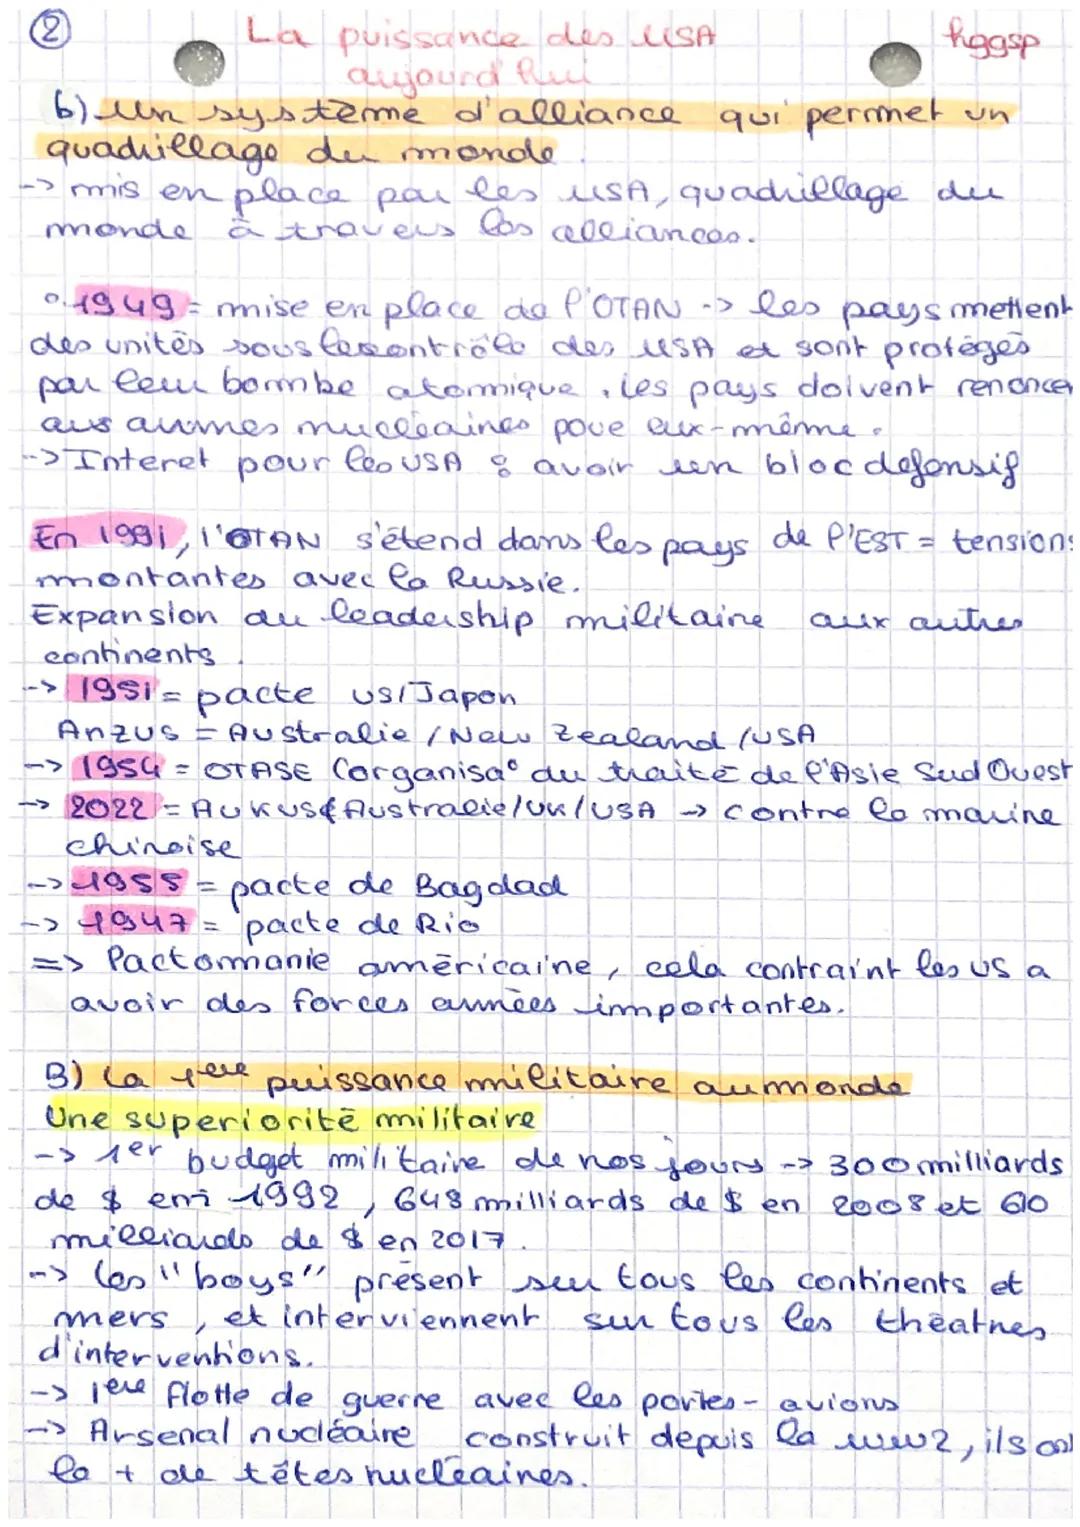 ②
La puissance des USA
aujourd'hui
hggsp
b) un système d'alliance qui permet un
quadrillage du monde.
-> mis en place par les USA, quadrillage du
monde à travers les alliances.
° 1949 = mise en place de l'OTAN -> les pays mettent
des unités sous le contrôle des USA et sont protégés
par leur bombe atomique, les pays doivent renoncer
aux armes nucléaires pour eux-même.
-> Interet pour les USA : avoir un bloc défensif
En 1991, l'OTAN s'étend dans les pays de l'EST = tensions
montantes avec la Russie.
Expansion du leadership militaire aux autres
continents.
-> 1951 = pacte US/Japon
Anzus = Australie / New Zealand /USA
-> 1954 = OTASE (organisa° du traité de l'Asie Sud Ouest
-> 2022 = AUKUS Australie/UK/USA -> contre la marine
chinoise
-> 1955 = pacte de Bagdad
-> 1947 = pacte de Rio
=> Pactomanie américaine, cela contraint les US a
avoir des forces armées importantes.
B) La 1ère puissance militaire au monde
Une superiorité militaire
-> 1er budget militaire de nos jours -> 300 milliards
de $ en 1992, 648 milliards de $ en 2008 et 610
milliards de $ en 2017.
-> les "boys" présent sur tous les continents et
mers, et interviennent sur tous les théatres
d'interventions.
-> 1ère flotte de guerre avec les portes-avions
-> Arsenal nucléaire construit depuis la ww2, ils ont
le + de têtes nucléaires.